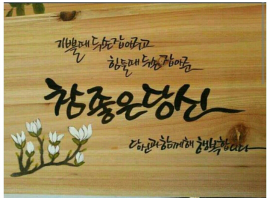 기쁠때 두손잡아주고
힘들때 두손잡아준
참좋은당신
당신과함께해 행복합니다